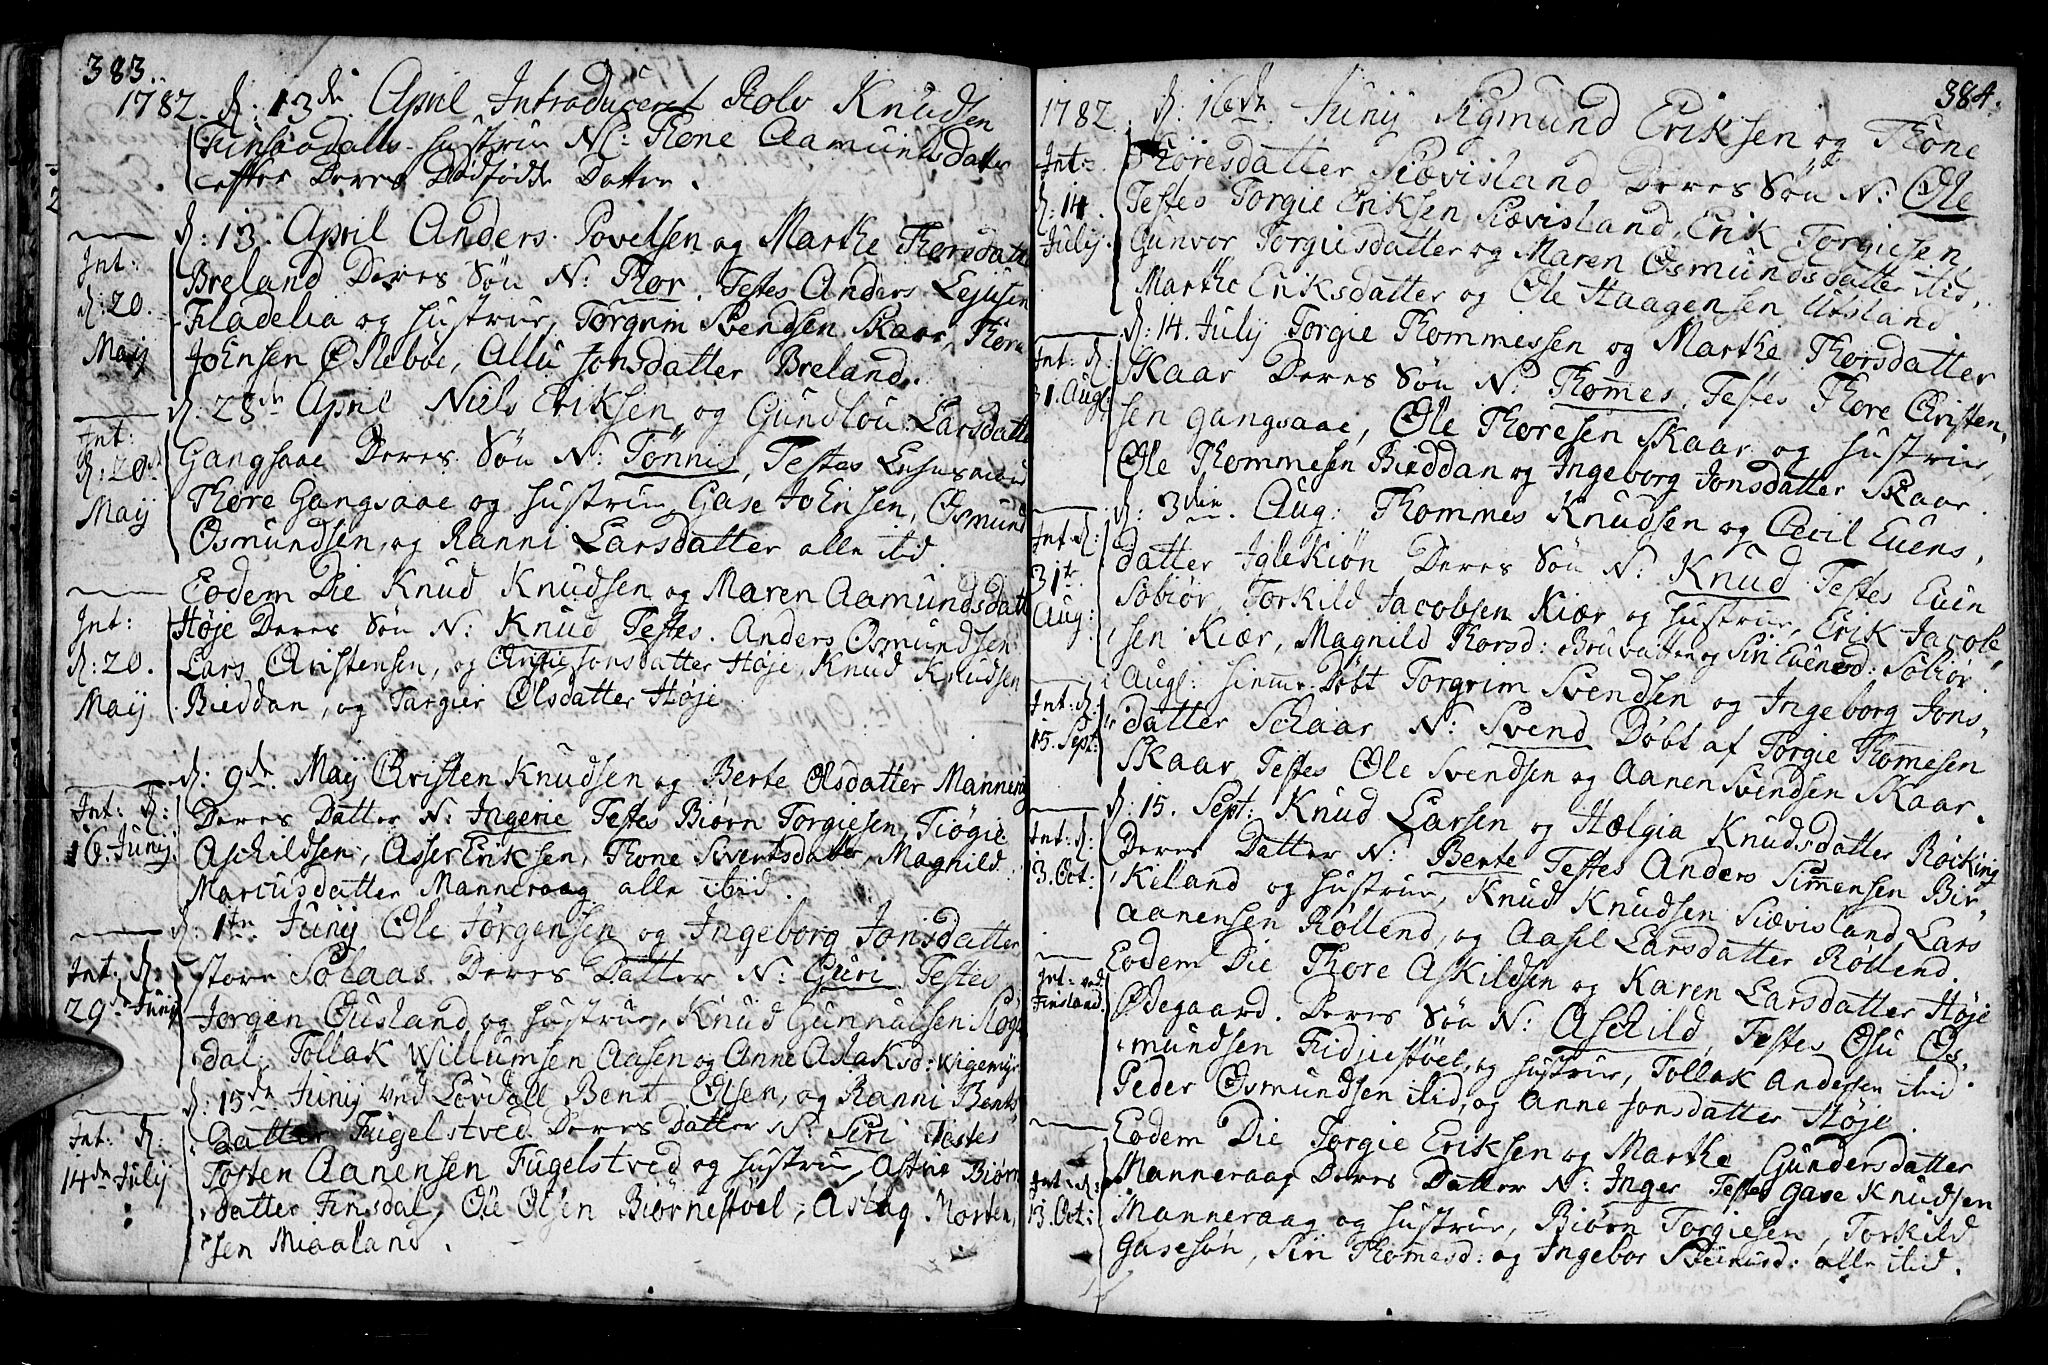 383.
1782. d: 13de April Introduceret Rolv Knudsen
Finsaadalls hustrue N: Thone Aamundsdatter
efter Deres Dødfødde Datter.
d: 13. April Anders Povelsen og Marthe Thorsdatter
Int:
d: 20.
Maij
Breland Deres Søn N: Thor. Testes Anders
Filadelia og hustrue, Torgrim Svendsen Skaar, Thore
Johnsen Øsleboe, Allu Jonsdatter Breland.
d: 28de April Niels Eriksen og Gundlou Larsdatter
Int:
d: 20de
Maij
Gangsaae Deres Søn N: Tønnis, Testes
Thore Gangsaae og hustrue Gase Johnsen, Osmund
Osmundsen, og Ranni Larsdatter alle ibid.
Eodem Die Knud Knudsen og Maren Aamundsdatter
Int:
d: 20.
Maij
Høje Deres Søn N: Knud Testes. Anders Osmundsen
Lars Christensen, og Jonsdatter Høje, Knud Knudsen
Bieddan, og Targier Olsdatter Høje
d: 9de Maij Christen Knudsen og Berte Olsdatter Manneraag
Int: d:
16. Junij
Deres Datter N: Ingerie Testes Biørn Torgiesen, Tiøgie
Aschildsen, Asser Eriksen, Thone Svendsdatter, Magnild
Marcusdatter Manneraag alle ibid.
d: 1te Junij Ole Jørgensen og Ingeborg Jonsdatter
Int: d:
29de Junij
store Solaas Deres Datter N: Guri Testes
Jørgen Ousland og hustrue, Knud Gunnuisen
dal, Tollak Willumsen Aasen og Anne Aslaksd:
d: 15de Junij ved Løvdall Bent Olsen, og Ranni Bents
Int: d:
14de Julij
datter Fugelstved Deres Datter N: Siri Testes
Tosten Aanensen Fugelstved og hustrue, Astrie Biørn
datter Finsdal, Ole Olsen Biørnestøel, Aslag Morten,
sen Miaaland.
384.
1782. d: 16de Junij Sigmund Eriksen og Thone
Int:
d: 14.
Julij.
Thoresdatter Siævisland Deres Søn N: Ole
Testes Torgie Eriksen Siævisland, Erik Torgiesen
Gunvor Torgiesdatter og Maren Osmundsdatter ibid,
Marthe Eriksdatter og Ole Haagensen Udsland.
d: 14. Julij Torgie Thommessen og Marthe Thorsdatter
Int: d:
31. Augl:
Skaar Deres Søn N: Thomes, Testes Thore Christen,
sen Gangsaae, Ole Thoresen Skaar og hustrue,
Ole Thommesen Bieddan og Ingeborg Jonsdatter Skaar.
d: 3die Aug: Thommes Knudsen og Cecil Euens,
Int: d:
31te
Aug:
datter Iglekiøn Deres Søn N: Knud Testes Euen
Søbiør, Torkild Jacobsen Kiær og hustrue, Erik Jacob
sen Kiær, Magnild Thorsd: Brubatten og Siri Euensd: Søbiør.
Augl: hiemme Døbt Torgrim Svendsen og Ingeborg Jons,
Int: d:
15. Sept:
datter Schaar N: Svend Døbt af Torgie Thomesen
Skaar Testes Ole Svendsen og Aanen Svendsen Skaar.
d: 15. Sept: Knud Larsen og Hælgia Knudsdatter
Int: d:
13. Oct:
Deres Datter N: Berte Testes Anders Simensen Bir,
keland og hustrue, Knud Knudsen Siævisland, Lars
Aanensen Røllend, og Aasel Larsdatter Røllend.
Eodem Die Thore Askildsen og Karen Larsdatter Høje
Int: ved
Finsland.
Ødegaard. Deres Søn N: Aschild, Testes Osu Os,
mundsen Fidjestøel, og hustrue, Tollak Andersen ibid
Peder Osmundsen ibid, og Anne Jonsdatter Høje.
Eodem Die Torgie Eriksen og Marthe Gundersdatter
Int: d:
13. Oct:
Manneraag Deres Datter N: Inger Testes Gase Knudsen
Manneraag og hustrue, Biørn Torgiesen, Torkild
Gasesøn, Siri Thomesd: og Ingebor alle ibid.